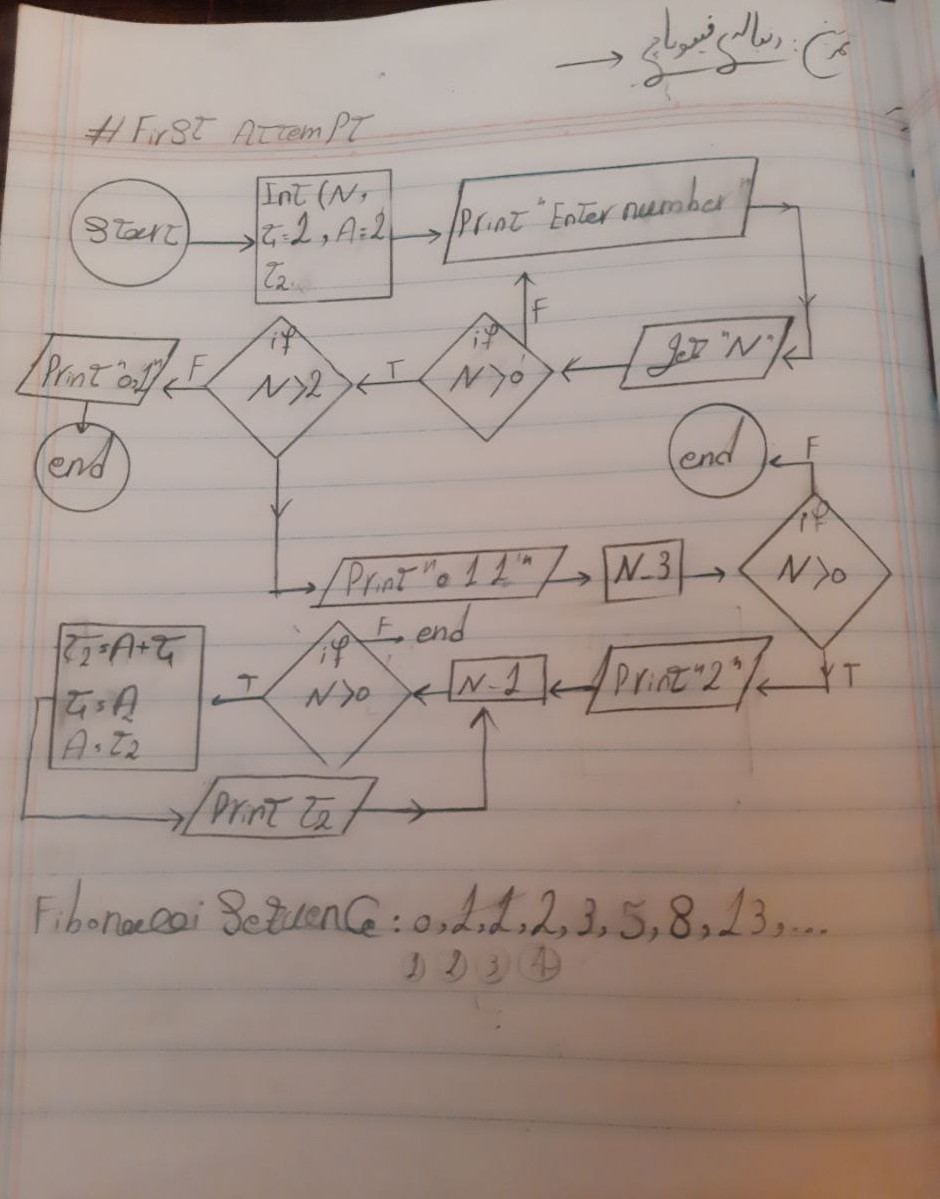 تمرین: دنباله‌ی فیبوناچی
# First Attempt
Start
Int (N,
τ1=1, A=2
τ2
Print "Enter number"
get "N"
if
N>0
F
T
if
N>2
F
Print "0,1"
end
Print "0 1 1"
N-3
if
N>0
F
end
T
Print "2"
N-1
if
N>0
F
end
T
τ2=A+τ1
τ1=A
A=τ2
Print τ2
Fibonacci Sequence: 0,1,1,2,3,5,8,13,...
1 2 3 4